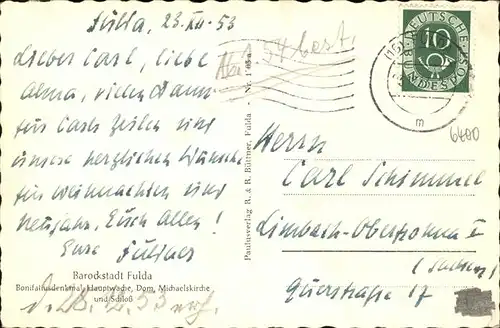 Fulda, 23.XII.53
Lieber Carl, liebe
Alma, vielen Dank
für Carls Zeilen und
unsere herzlichen Wünsche
für Weihnachten und
Neujahr, Euch allen!
Eure Fuldaer
54 best.
Barockstadt Fulda
Bonifatiusdenkmal, Hauptwache, Dom, Michaelskirche
und Schloß
d. 28.12.53
Paulusverlag R. & R. Büttner, Fulda - Nr.
DEUTSCHE
BUNDESPOST
10
(16)
m
6400
Herrn
Carl Schimmel
Limbach-Oberfrohna I
(Sachsen)
Querstraße 17